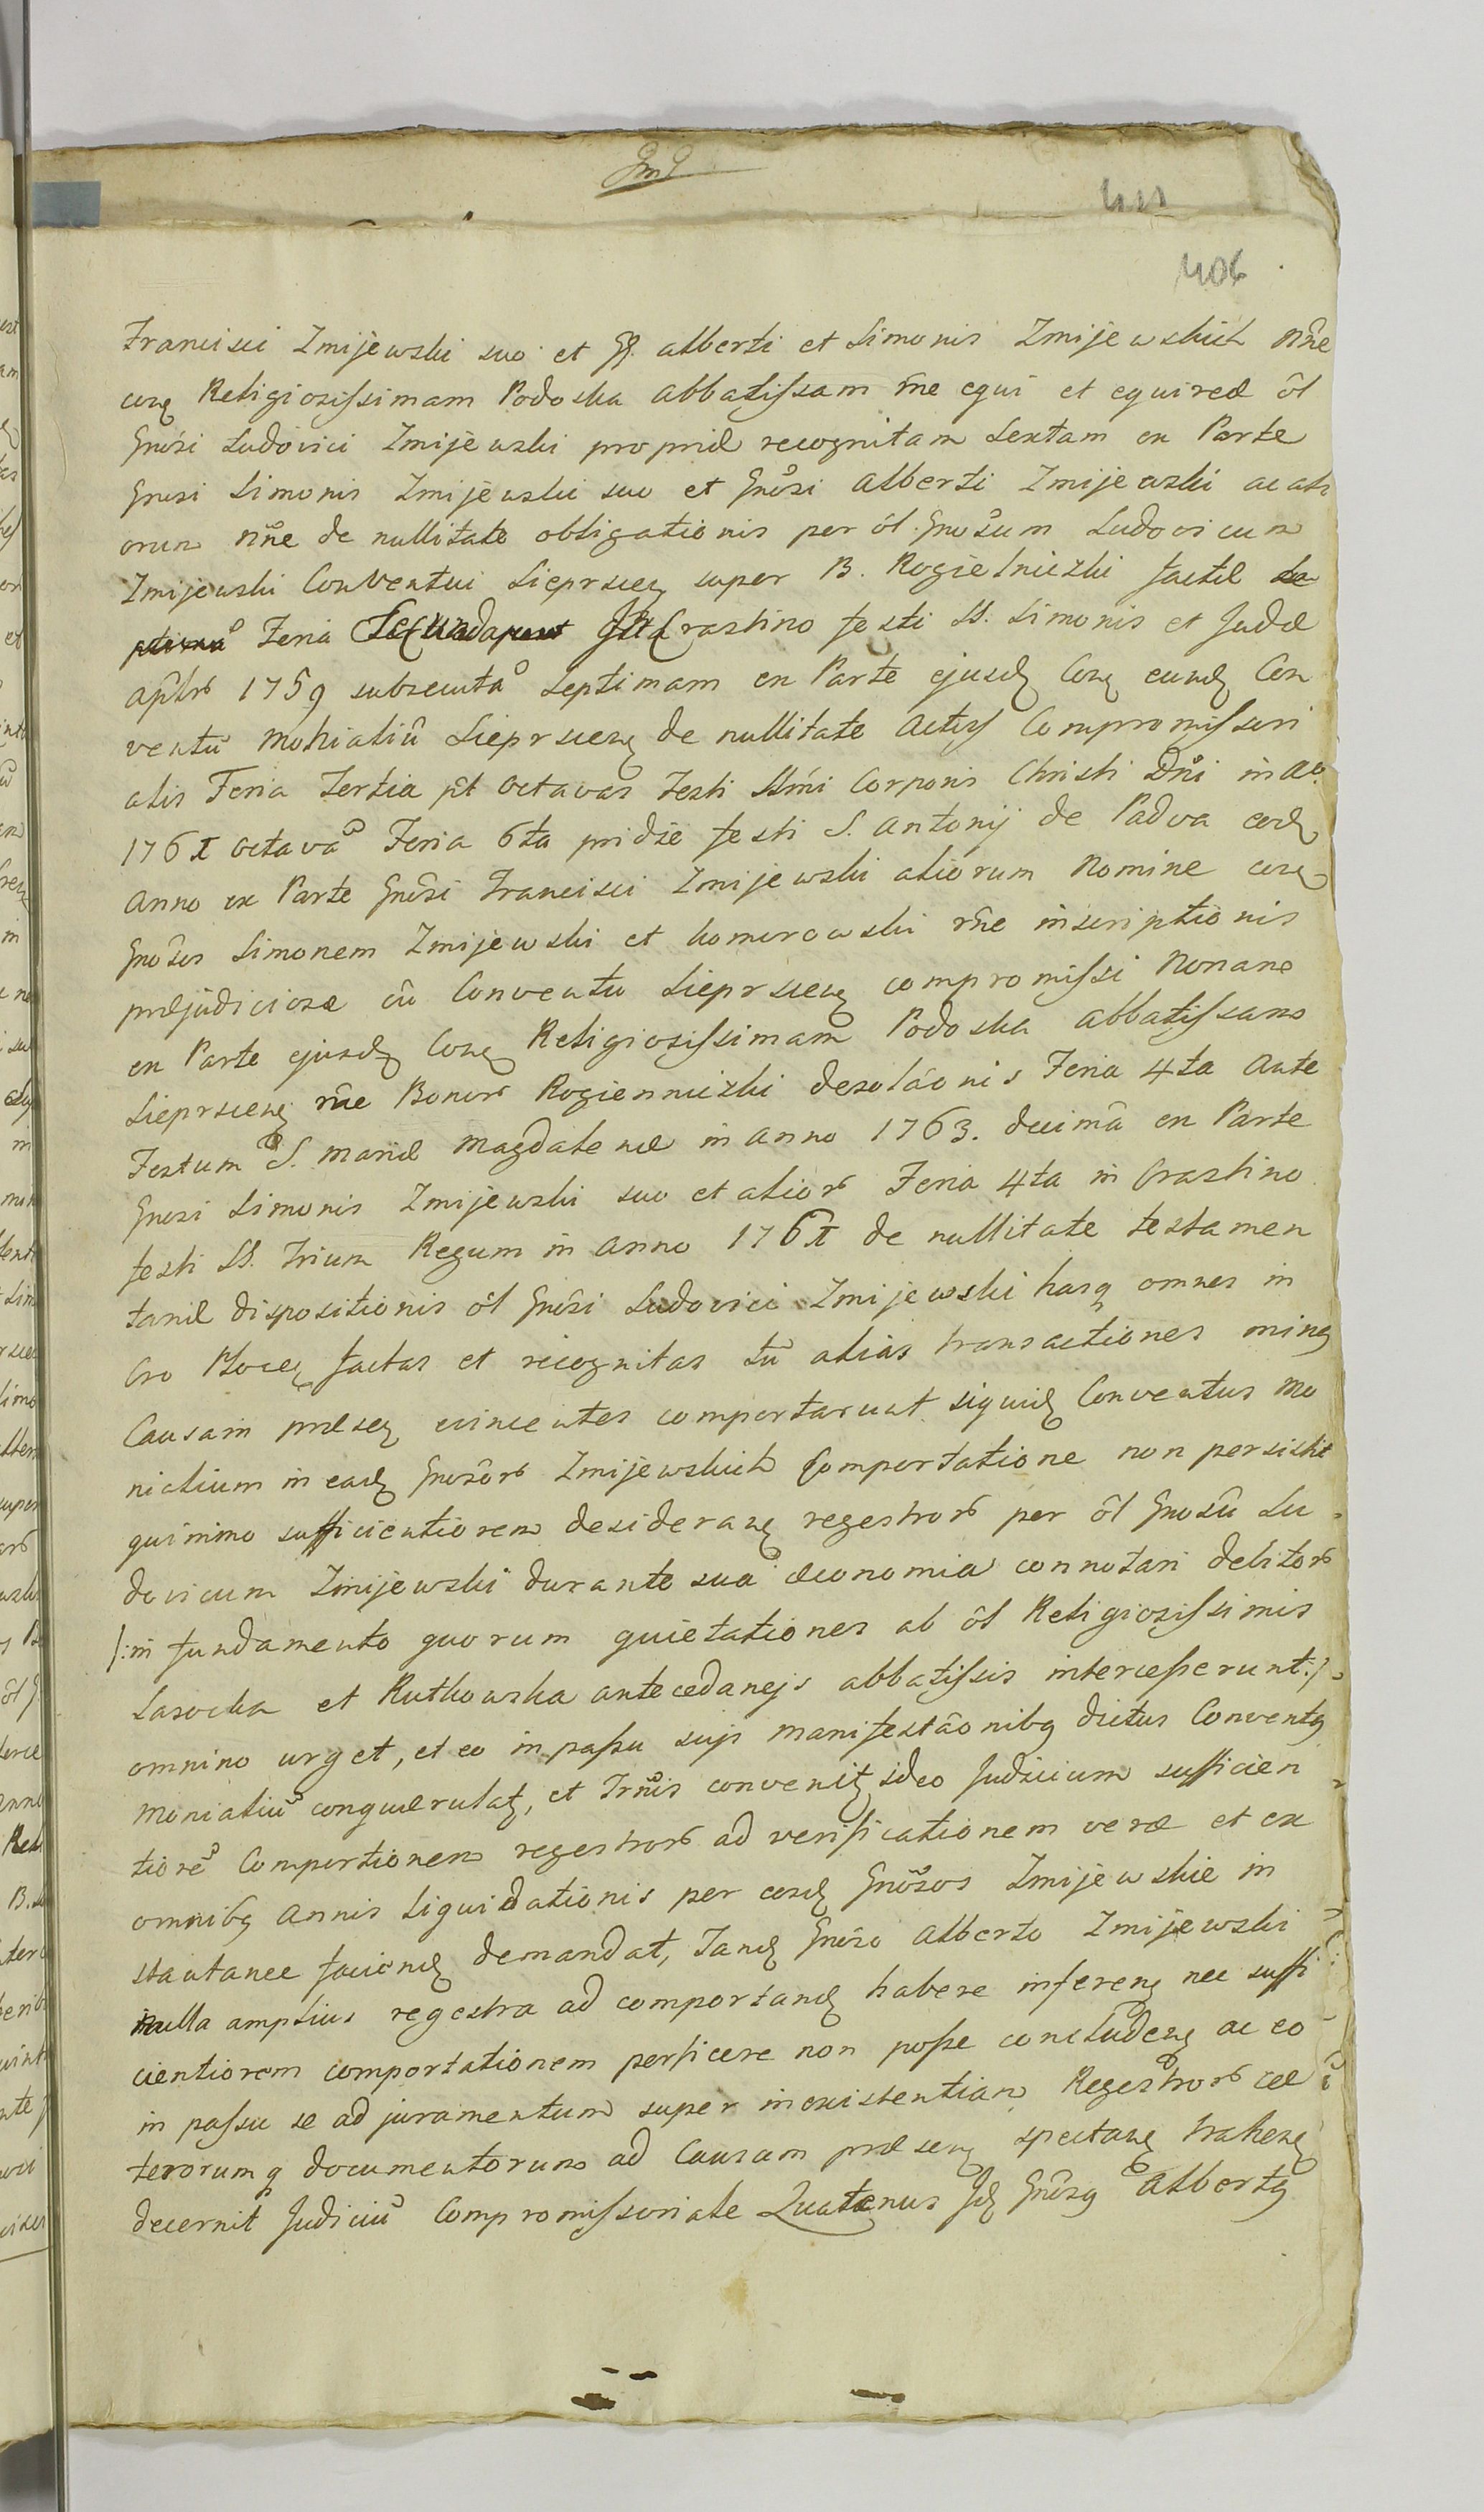 406
Francisci Zmijewski suo et GG. Alberti et Simonis Zmijewskich nñe
cosq Religiosissimam Podoska Abbatissam rñe equi et equireæ ôl
Gnôsi Ludovici Zmijewski propriæ recognitam Sextam ex Parte
Gnosi Simonis Zmijewski suo et Gnôsi Alberti Zmijewski ac ali
orum nñe de nullitate obligationis per ôl Gnosum Ludovicum
Zmijewski Conventui Sieprscen super B. Rogielniczki factæ
Feria Secunda in Crastino festi SS. Simonis et Judæ
aplor 1759 subsecuta Septimam ex Parte ejusd Cosq eund Con
ventũ Monialiũ Sieprscens de nullitate Actus Compromissori
alis Feria Tertia pt Octavas Festi SSmi Corporis Christi Dñi in Ao
1761 Octavã Feria 6ta pridie festi S. Antonij de Padua eod
Anno ex Parte Gnôsi Francisci Zmijewski aliorum Nomine cosq
Gnosos Simonem Zmijewski et Komorowski rñe inscriptionis
præjudiciosæ cũ Conventu Sieprscens compromissi Nonam
ex Parte ejusd Cosq Religiosissimam Podoska Abbatissam
Sieprscens rñe Bonor Rogienniczki desolãonis Feria 4ta Ante
Festum S. Mariæ Magdalenæ in Anno 1763. decimã ex Parte
Gnosi Simonis Zmijewski suo et alior Feria 4ta in Crastino
festi SS. Trium Regum in Anno 1761 de nullitate testamen
tariæ dispositionis ôl Gnôsi Ludovici Zmijewski hasq omnes in
Cro Plocen factas et recognitas tũ alias transactiones
Causam præsen evincentes comportarunt siquid Conventus Mo
nialium in ead Gnosôr Zmijewskich Comportatione non persistit
quinimo sufficientiorem desiderans regestror per ôl Gnosũ Lu
dovicum Zmijewski durante sua œconomia connotari debitor
/:in fundamento quorum quietationes ab ôl Religiosissimis
Lasocka et Rutkowska antecedanejs abbatissis intercesserunt:/
omnino urget, et eo in passu sujs manifestãonibq dictus Conventq
Monialiũ conquærulat, et Trñis convenit, ideo Judicium sufficien
tiorẽ Comportionem regestror ad verificationem veræ et ex
omnibq Annis liquidationis per eosd Gnôsos Zmijewskie in
stantanee faciend demandat, Tand Gnôso Alberto Zmijewski
nulla amplius regestra ad comportand habere inferens nec suffi
cientiorem comportationem perficere non posse concludens ac eo
in passu se ad juramentum super inexistentiam Regestror cæ
terorumq documentorum ad Causam præsens spectans trahens
decernit Judiciũ Compromissoriale Quatenus Jd Gnôsq Albertq